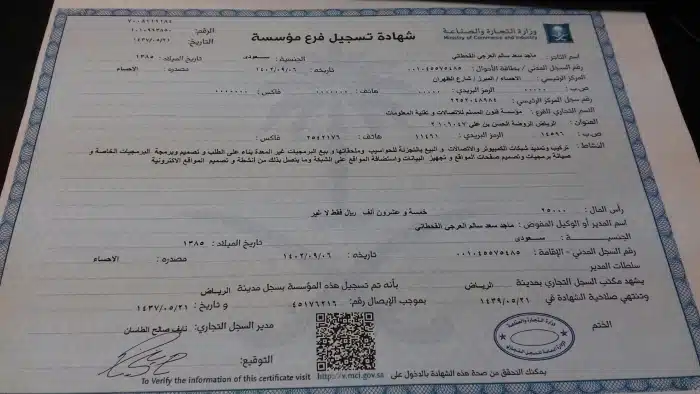 ٧٠٠٨٦٦٩٢٨٤
الرقم: ١٠١٠٩٩٣٨٥٠
التاريخ: ١٤٣٧/٠٥/٢١
شهادة تسجيل فرع مؤسسة
وزارة التجارة والصناعة
Ministry of Commerce and Industry
اسم التاجر: ماجد سعد سالم العرجى القحطاني الجنسية: سعودى تاريخ الميلاد: ١٣٨٥
رقم السجل المدني / بطاقة الأحوال: ٠٠١٠٤٥٥٧٥٤٨٥ تاريخه: ١٤٠٢/٠٩/٠٦ مصدره: الاحساء
المركز الرئيسي: الاحساء / المبرز / شارع الظهران
ص ب: ٠٠٠٠٠ الرمز البريدي: ٠٠٠٠٠ هاتف: ٠٠٠٠٠٠٠ فاكس: ٠٠٠٠٠٠٠
رقم سجل المركز الرئيسي: ٢٢٥٢٠٤٨٩٨٤
الاسم التجاري للفرع: مؤسسة فنون المسم للاتصالات و تقنية المعلومات
العنوان: الرياض الروضة الحسن بن على
ص ب: ١٤٥٩٦ الرمز البريدي: ١١٤٦١ هاتف: ٢٥٤٢١٧٦ فاكس:
النشاط: تركيب وتمديد شبكات الكمبيوتر والاتصالات و البيع بالتجزئة للحواسيب وملحقاتها و بيع البرمجيات غير المعدة بناء على الطلب و تصميم وبرمجة البرمجيات الخاصة و
صيانة برمجيات وتصميم صفحات المواقع و تجهيز البيانات واستضافة المواقع على الشبكة وما يتصل بذلك من انشطة و تصميم المواقع الالكترونية
رأس المال: ٢٥٠٠٠ خمسة و عشرون ألف ريال فقط لا غير
اسم المدير أو الوكيل المفوض: ماجد سعد سالم العرجى القحطاني
الجنسية: سعودى تاريخ الميلاد: ١٣٨٥
رقم السجل المدني - الإقامة: ٠٠١٠٤٥٥٧٥٤٨٥ تاريخه: ١٤٠٢/٠٩/٠٦ مصدره: الاحساء
سلطات المدير
يشهد مكتب السجل التجاري بمدينة الرياض بأنه تم تسجيل هذه المؤسسة بسجل مدينة الرياض
وتنتهي صلاحية الشهادة في ١٤٣٩/٠٥/٢١ بموجب الإيصال رقم: ٤٥١٧٦٢١٦ و تاريخ: ١٤٣٧/٠٥/٢١
الختم
مدير السجل التجاري: نايف صالح الطاسان
التوقيع:
يمكنك التحقق من صحة هذه الشهادة بالدخول على http://v.mci.gov.sa To Verify the information of this certificate visit